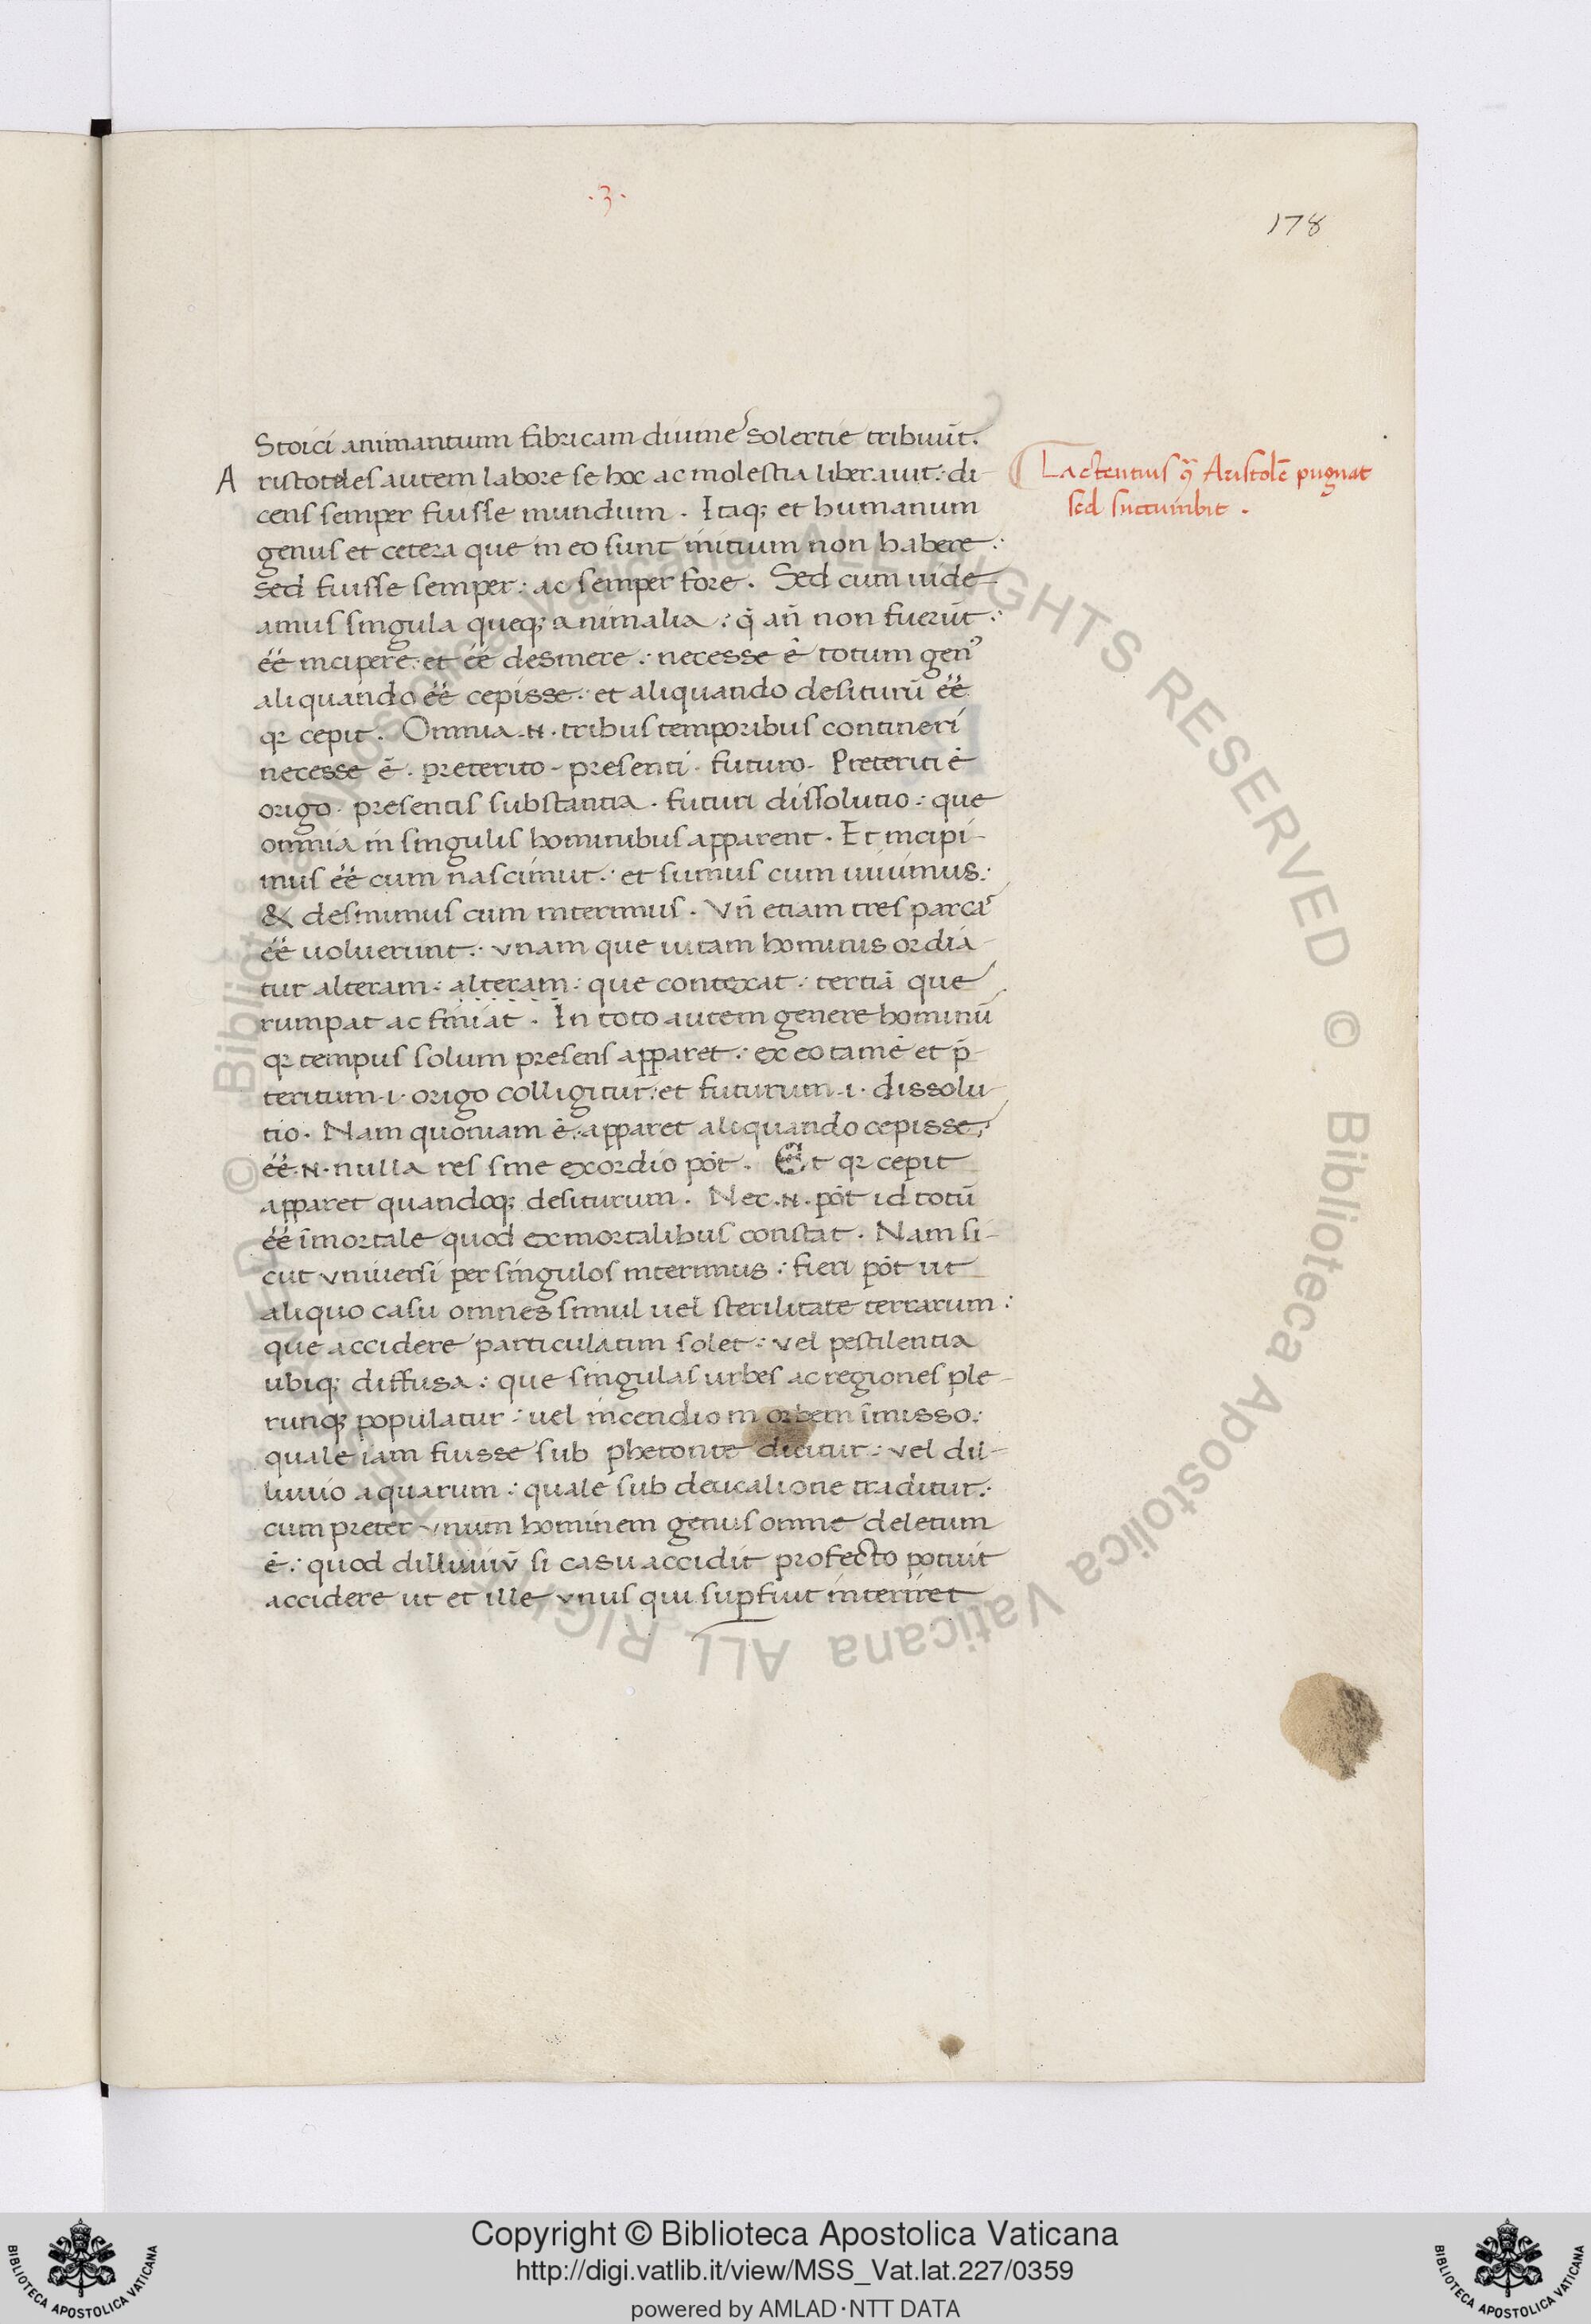 .3.
178
Stoici animantium fabricam diuinę solertie tribuūt.
Aristoteles autem labore se hoc ac molestia liberauit: di-
cens semper fuisse mundum. Itaq; et humanum
genus et cetera que in eo sunt initium non habere:
sed fuisse semper: ac semper fore. Sed cum uide-
amus singula queq; animalia: q̄ añ non fuerūt:
éé incipere: et éé desinere: necesse ē totum genꝰ
aliquando éé cepisse: et aliquando desiturū éé
qr cepit. Omnia .N. tribus temporibus contineri
necesse ē. preterito. presenti. futuro. Preteriti ē
origo. presentis substantia. futuri dissolutio: que
omnia in singulis hominibus apparent. Et incipi-
mus éé cum nascimur: et sumus cum uiuimus:
& desinimus cum interimus. Vñ etiam tres parcas
éé uoluerunt: vnam que uitam hominis ordia-
tur alteram: alteram: que contexat: tertiā que
rumpat ac finiat. In toto autem genere hominū
qr tempus solum presens apparet: ex eo tamē et p̄-
teritum .i. origo colligitur: et futurum .i. dissolu-
tio. Nam quoniam ē: apparet aliquando cepisse:
éé .N. nulla res sine exordio pōt. Et qr cepit
apparet quandoq; desiturum. Nec .N. pōt id totū
éé īmortale quod ex mortalibus constat. Nam si-
cut vniuersi per singulos interimus: fieri pōt ut
aliquo casu omnes simul uel sterilitate terrarum:
que accidere particulatim solet: vel pestilentia
ubiq; diffusa: que singulas urbes ac regiones ple-
runq; populatur: uel incendio in orbem īmisso:
quale iam fuisse sub phetonte dicitur: vel dil-
luuio aquarum: quale sub deucalione traditur:
cum preter vnum hominem genus omne deletum
ē: quod dilluuiū si casu accidit profecto potuit
accidere ut et ille vnus qui supfuit interiret
Lactentius ꝯ̄ Aristolē pugnat
sed succumbit.
© Biblioteca Apostolica Vaticana ALL RIGHTS RESERVED © Biblioteca Apostolica Vaticana ALL RIGHTS RESERVED
Copyright © Biblioteca Apostolica Vaticana
http://digi.vatlib.it/view/MSS_Vat.lat.227/0359
powered by AMLAD·NTT DATA
BIBLIOTECA APOSTOLICA VATICANA
BIBLIOTECA APOSTOLICA VATICANA